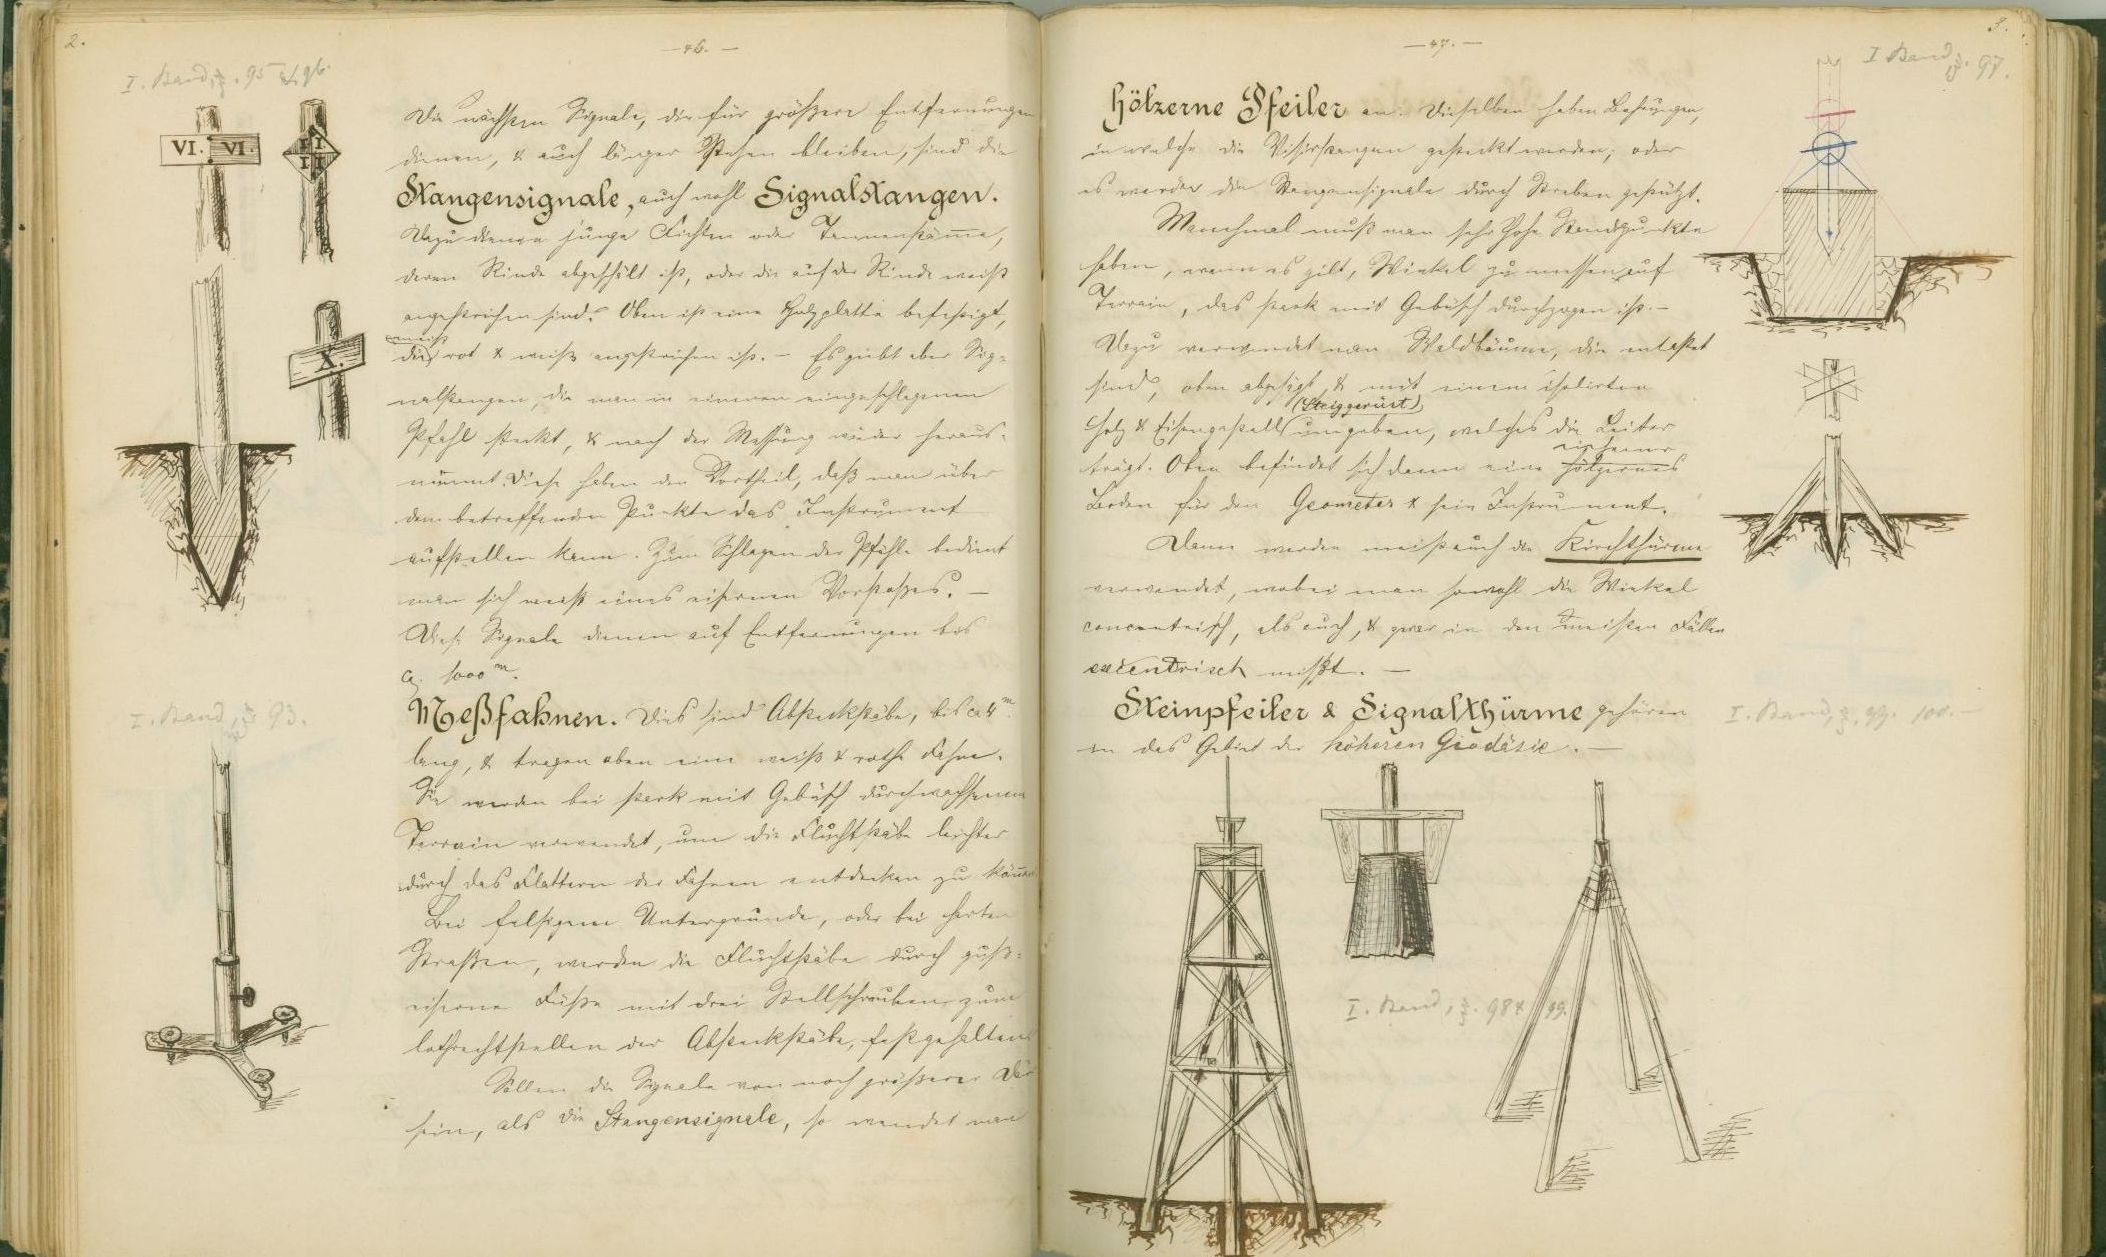 2.
— 46. —
I. Band, S. 95 & 96.
VI. VI.
II
II
X.
Die nächsten Signale, die für größere Entfernungen
dienen, & auch länger stehen bleiben, sind die
Stangensignale, auch wohl Signalstangen.
Dazu dienen junge Fichten oder Tannenstämme,
deren Rinde abgeschält ist, oder die auf der Rinde weiß
angestrichen sind. Oben ist eine Holzplatte befestigt,
meist
die rot & weiß angestrichen ist. — Es giebt aber Sig-
nalstangen, die man in einen eingeschlagenen
Pfahl steckt, & nach der Messung wieder heraus-
nimmt. Diese haben den Vortheil, daß man über
dem betreffenden Punkte das Instrument
aufstellen kann. Zum Schlagen der Pfähle bedient
man sich meist eines eisernen Vorstoßes. —
Diese Signale dienen auf Entfernungen bis
ca. 1000 m.
I. Band, S. 93.
Meßfahnen. Dies sind Absteckstäbe, bis ca 4 m.
lang, & tragen oben eine weiß & rothe Fahne.
Sie werden bei stark mit Gebüsch durchwachsenem
Terrain verwendet, um die Fluchtstäbe leichter
durch das Flattern der Fahnen entdecken zu können
Bei felsigem Untergrunde, oder bei harten
Straßen, werden die Fluchtstäbe durch guß-
eiserne Füße mit drei Stellschrauben, zum
lothrechtstellen der Absteckstäbe, festgehalten
Sollen die Signale von noch größerer
sein, als die Stangensignale, so wendet man
3.
— 47. —
I Band, S. 97.
hölzerne Pfeiler an. Dieselben haben
in welche die Visirstangen gesteckt werden; oder
es werden die Stangensignale durch Streben gestützt.
Manchmal muß man sehr hohe Standpunkte
haben, wenn es gilt, Winkel zu messen auf
Terrain, das stark mit Gebüsch durchzogen ist. —
Dazu verwendet man Waldbäume, die entastet
sind, oben abgesägt & mit einem isolirten
(Steiggerüst)
Holz & Eisengestell umgeben, welches die Leiter
trägt. Oben befindet sich dann eine hölzernes
Boden für den Geometer & sein Instrument.
Dann werden meist auch die Kirchthürme
verwendet, wobei man sowohl die Winkel
concentrisch, als auch, & zwar in den meisten Fällen
excentrisch mißt. —
Steinpfeiler & Signalthürme gehören
in das Gebiet der höheren Geodäsie. —
I. Band, S. 99. 100.
I. Band, S. 98 & 99.